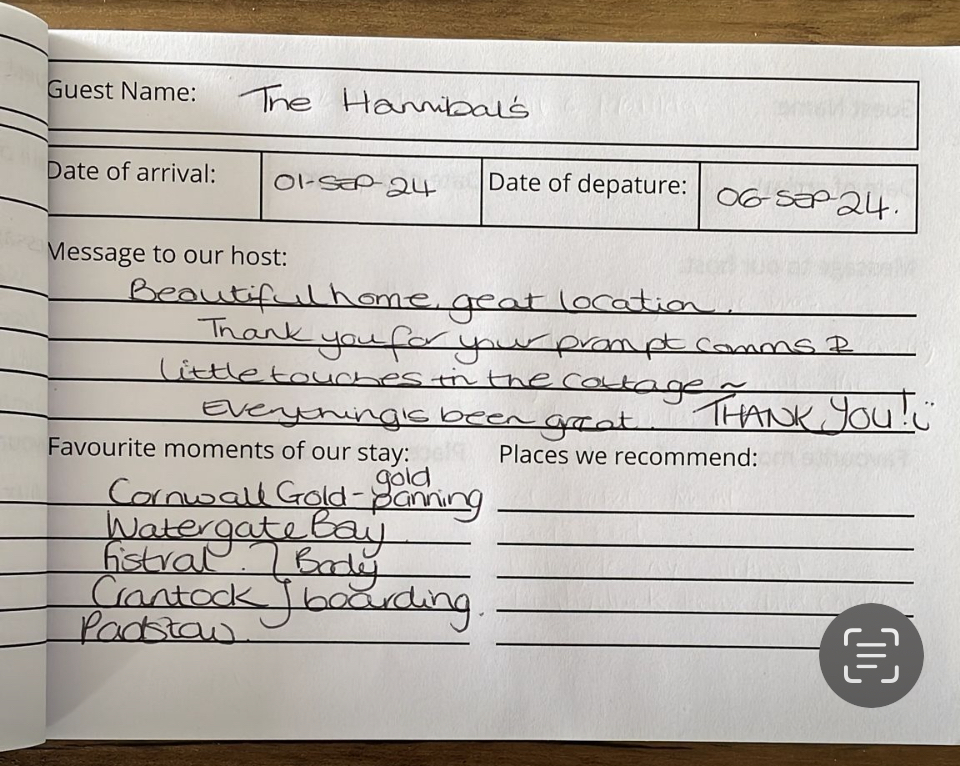 Guest Name: The Hannibal's
Date of arrival: 01-SEP-24 Date of depature: 06-SEP-24.
Message to our host:
Beautiful home, geat location.
Thank you for your prompt comms &
little touches in the cottage ~
Everything's been great. THANK YOU!
Favourite moments of our stay:
Cornwall Gold - gold panning
Watergate Bay
Fistral } Body
Crantock } boarding.
Padstow
Places we recommend: